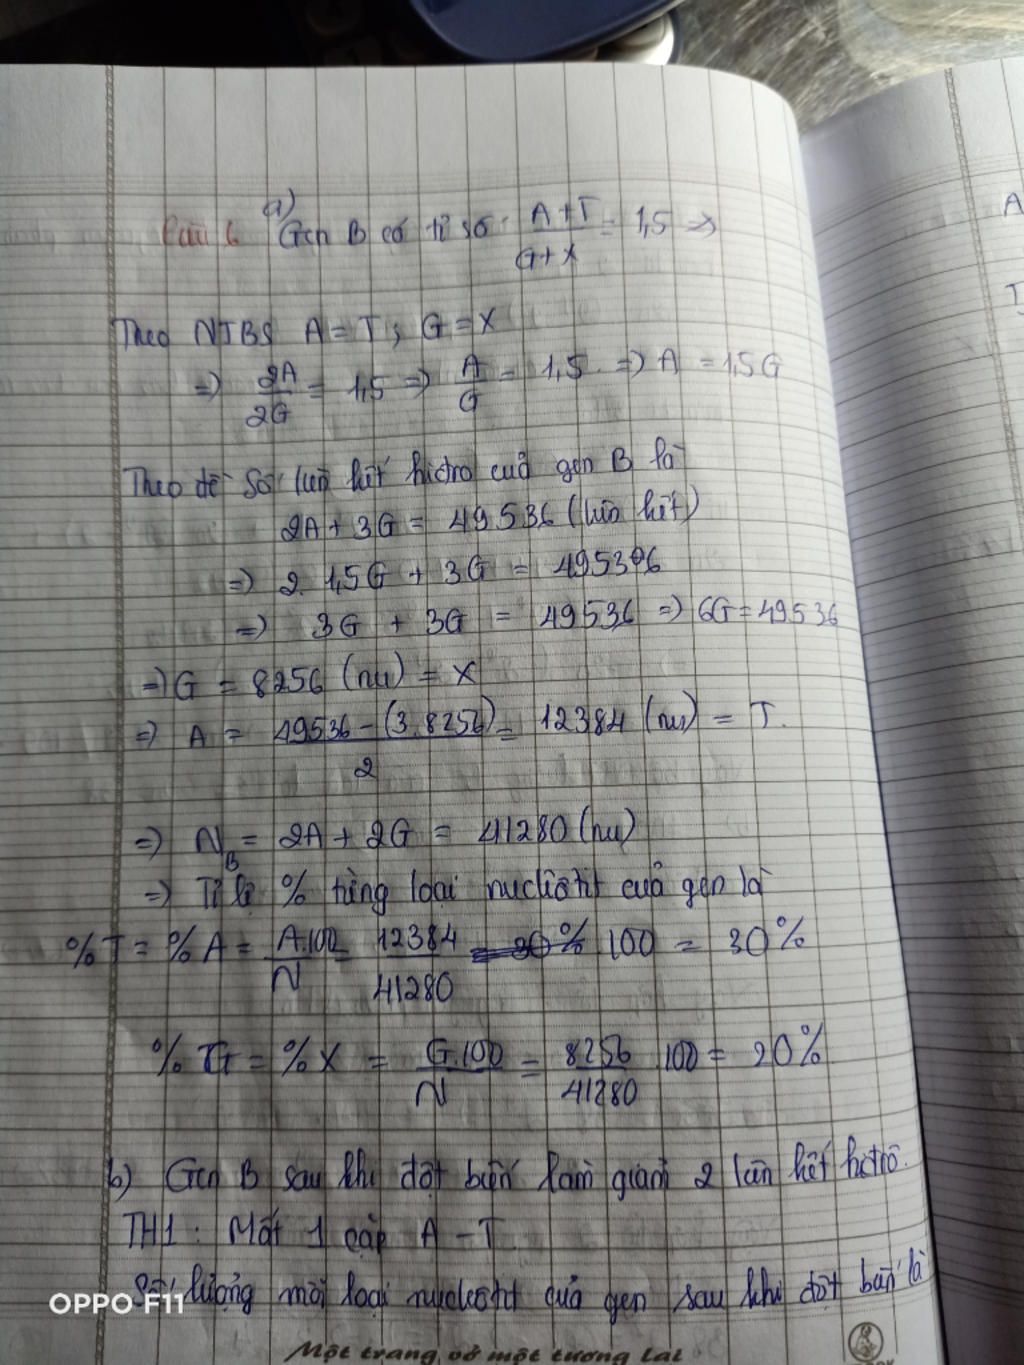 Câu 6 a) Gen B có tỉ số: A+T / G+X = 1,5 =>
Theo NTBS A = T ; G = X
=> 2A / 2G = 1,5 => A / G = 1,5 => A = 1,5G
Theo đề Số liên kết hidro của gen B là
2A + 3G = 49536 (liên kết)
=> 2. 1,5G + 3G = 49536
=> 3G + 3G = 49536 => 6G = 49536
=> G = 8256 (nu) = X
=> A = 49536 - (3.8256) / 2 = 12384 (nu) = T.
=> N_B = 2A + 2G = 41280 (nu)
=> Tỉ lệ % từng loại nuclêôtit của gen là
%T = %A = A.100 / N = 12384 / 41280 100 = 30%
%G = %X = G.100 / N = 8256 / 41280 100 = 20%
b) Gen B sau khi đột biến làm giảm 2 liên kết hiđrô.
TH1: Mất 1 cặp A - T
Số lượng mỗi loại nucleotit của gen sau khi đột biến là
OPPO F11
Một trang vở một tương lai
A